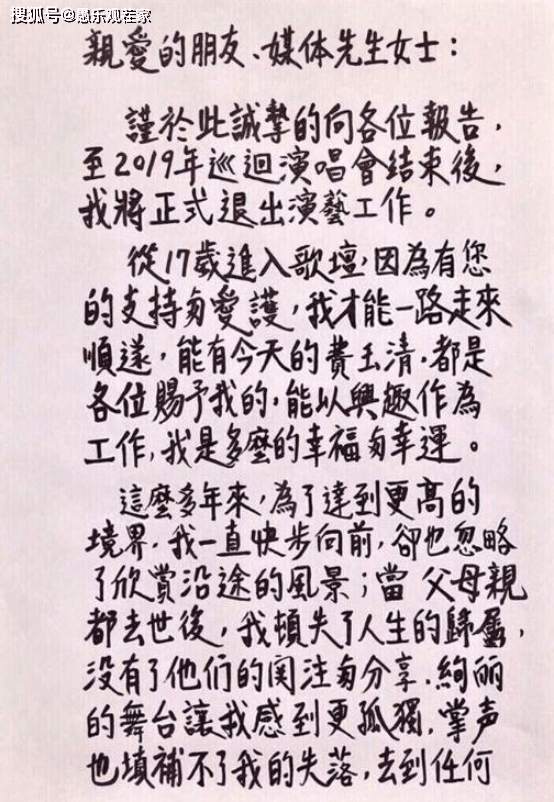 搜狐号@愚乐观在家
親愛的朋友、媒体先生女士：
謹於此誠摯的向各位報告，
至2019年巡迴演唱會结束後，
我將正式退出演藝工作。
從17歲進入歌壇，因為有您
的支持与愛護，我才能一路走來
順遂，能有今天的費玉清，都是
各位賜予我的，能以興趣作為
工作，我是多麼的幸福与幸運。
這麼多年來，為了達到更高的
境界，我一直快步向前，卻也忽略
了欣賞沿途的風景；當父母親
都去世後，我頓失了人生的歸屬，
没有了他们的関注与分享，絢丽
的舞台讓我感到更孤獨，掌声
也填補不了我的失落，去到任何